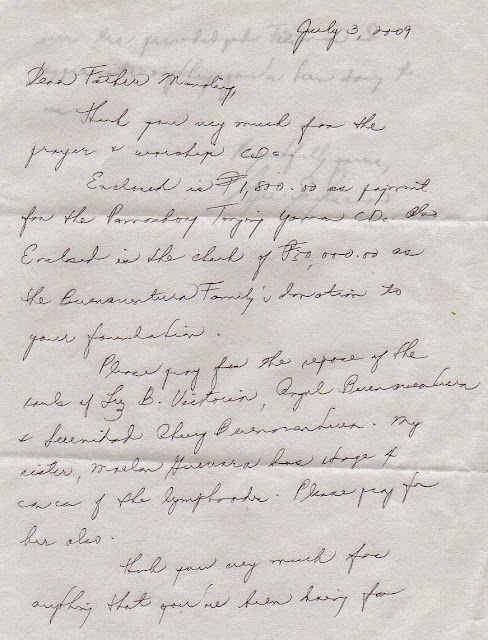 July 3, 2009
Dear Father Manoling,
Thank you very much for the
prayer & worship CDs.
Enclosed is ₱1,800.00 as payment
for the CDs. Also
Enclosed is the check of ₱50,000.00 as
the Buenaventura Family's donation to
your foundation.
Please pray for the repose of the
souls of Luz B. Victoria, Angel Buenaventura
& Buenaventura. My
sister, Guevara has stage 4
cancer of the lymphnode. Please pray for
her also.
Thank you very much for
anything that you've been doing for